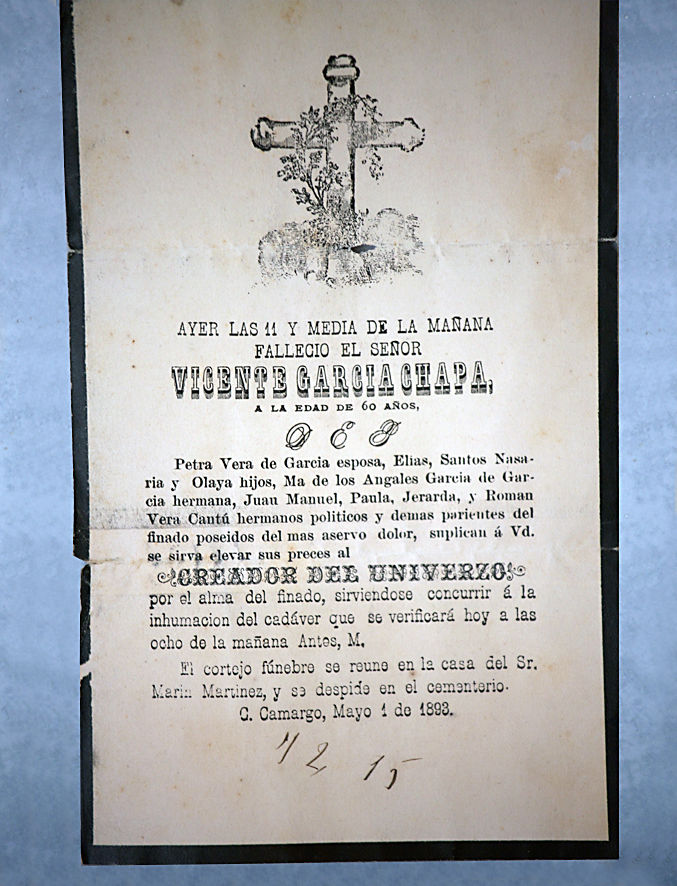 AYER LAS 11 Y MEDIA DE LA MAÑANA
FALLECIO EL SEÑOR
VICENTE GARCIA CHAPA,
A LA EDAD DE 60 AÑOS,
D E P
Petra Vera de Garcia esposa, Elias, Santos Nasa-
ria y Olaya hijos, Ma de los Angales Garcia de Gar-
cia hermana, Juan Manuel, Paula, Jerarda, y Roman
Vera Cantú hermanos politicos y demas parientes del
finado poseidos del mas aservo dolor, suplican á Vd.
se sirva elevar sus preces al
CREADOR DEL UNIVERZO
por el alma del finado, sirviendose concurrir á la
inhumacion del cadáver que se verificará hoy a las
ocho de la mañana Antes, M.
El cortejo fúnebre se reune en la casa del Sr.
Martinez, y se despide en el cementerio.
C. Camargo, Mayo 1 de 1893.
42 15